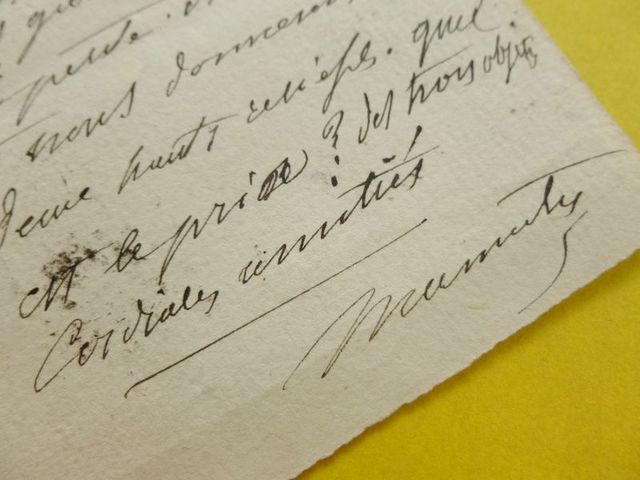 perde.
nous donner
deux hauts reliefs. quel
est le prix ? des trois objets
Cordiales amitiés !